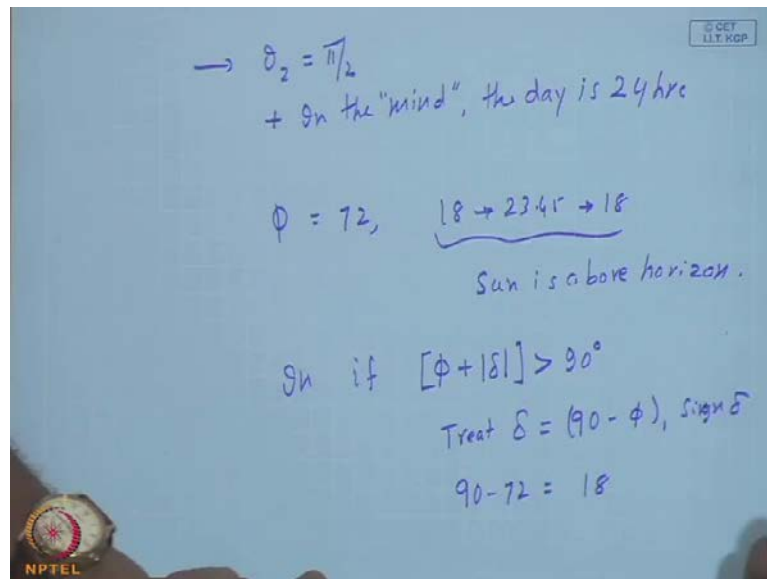 © CET
I.I.T. KGP
→ θ₂ = π/2
+ In the "mind", the day is 24 hrs
Φ = 72, 18 → 23.45 → 18
Sun is above horizon.
In if [φ + |δ|] > 90°
Treat δ = (90 - φ), sign δ
90 - 72 = 18
NPTEL